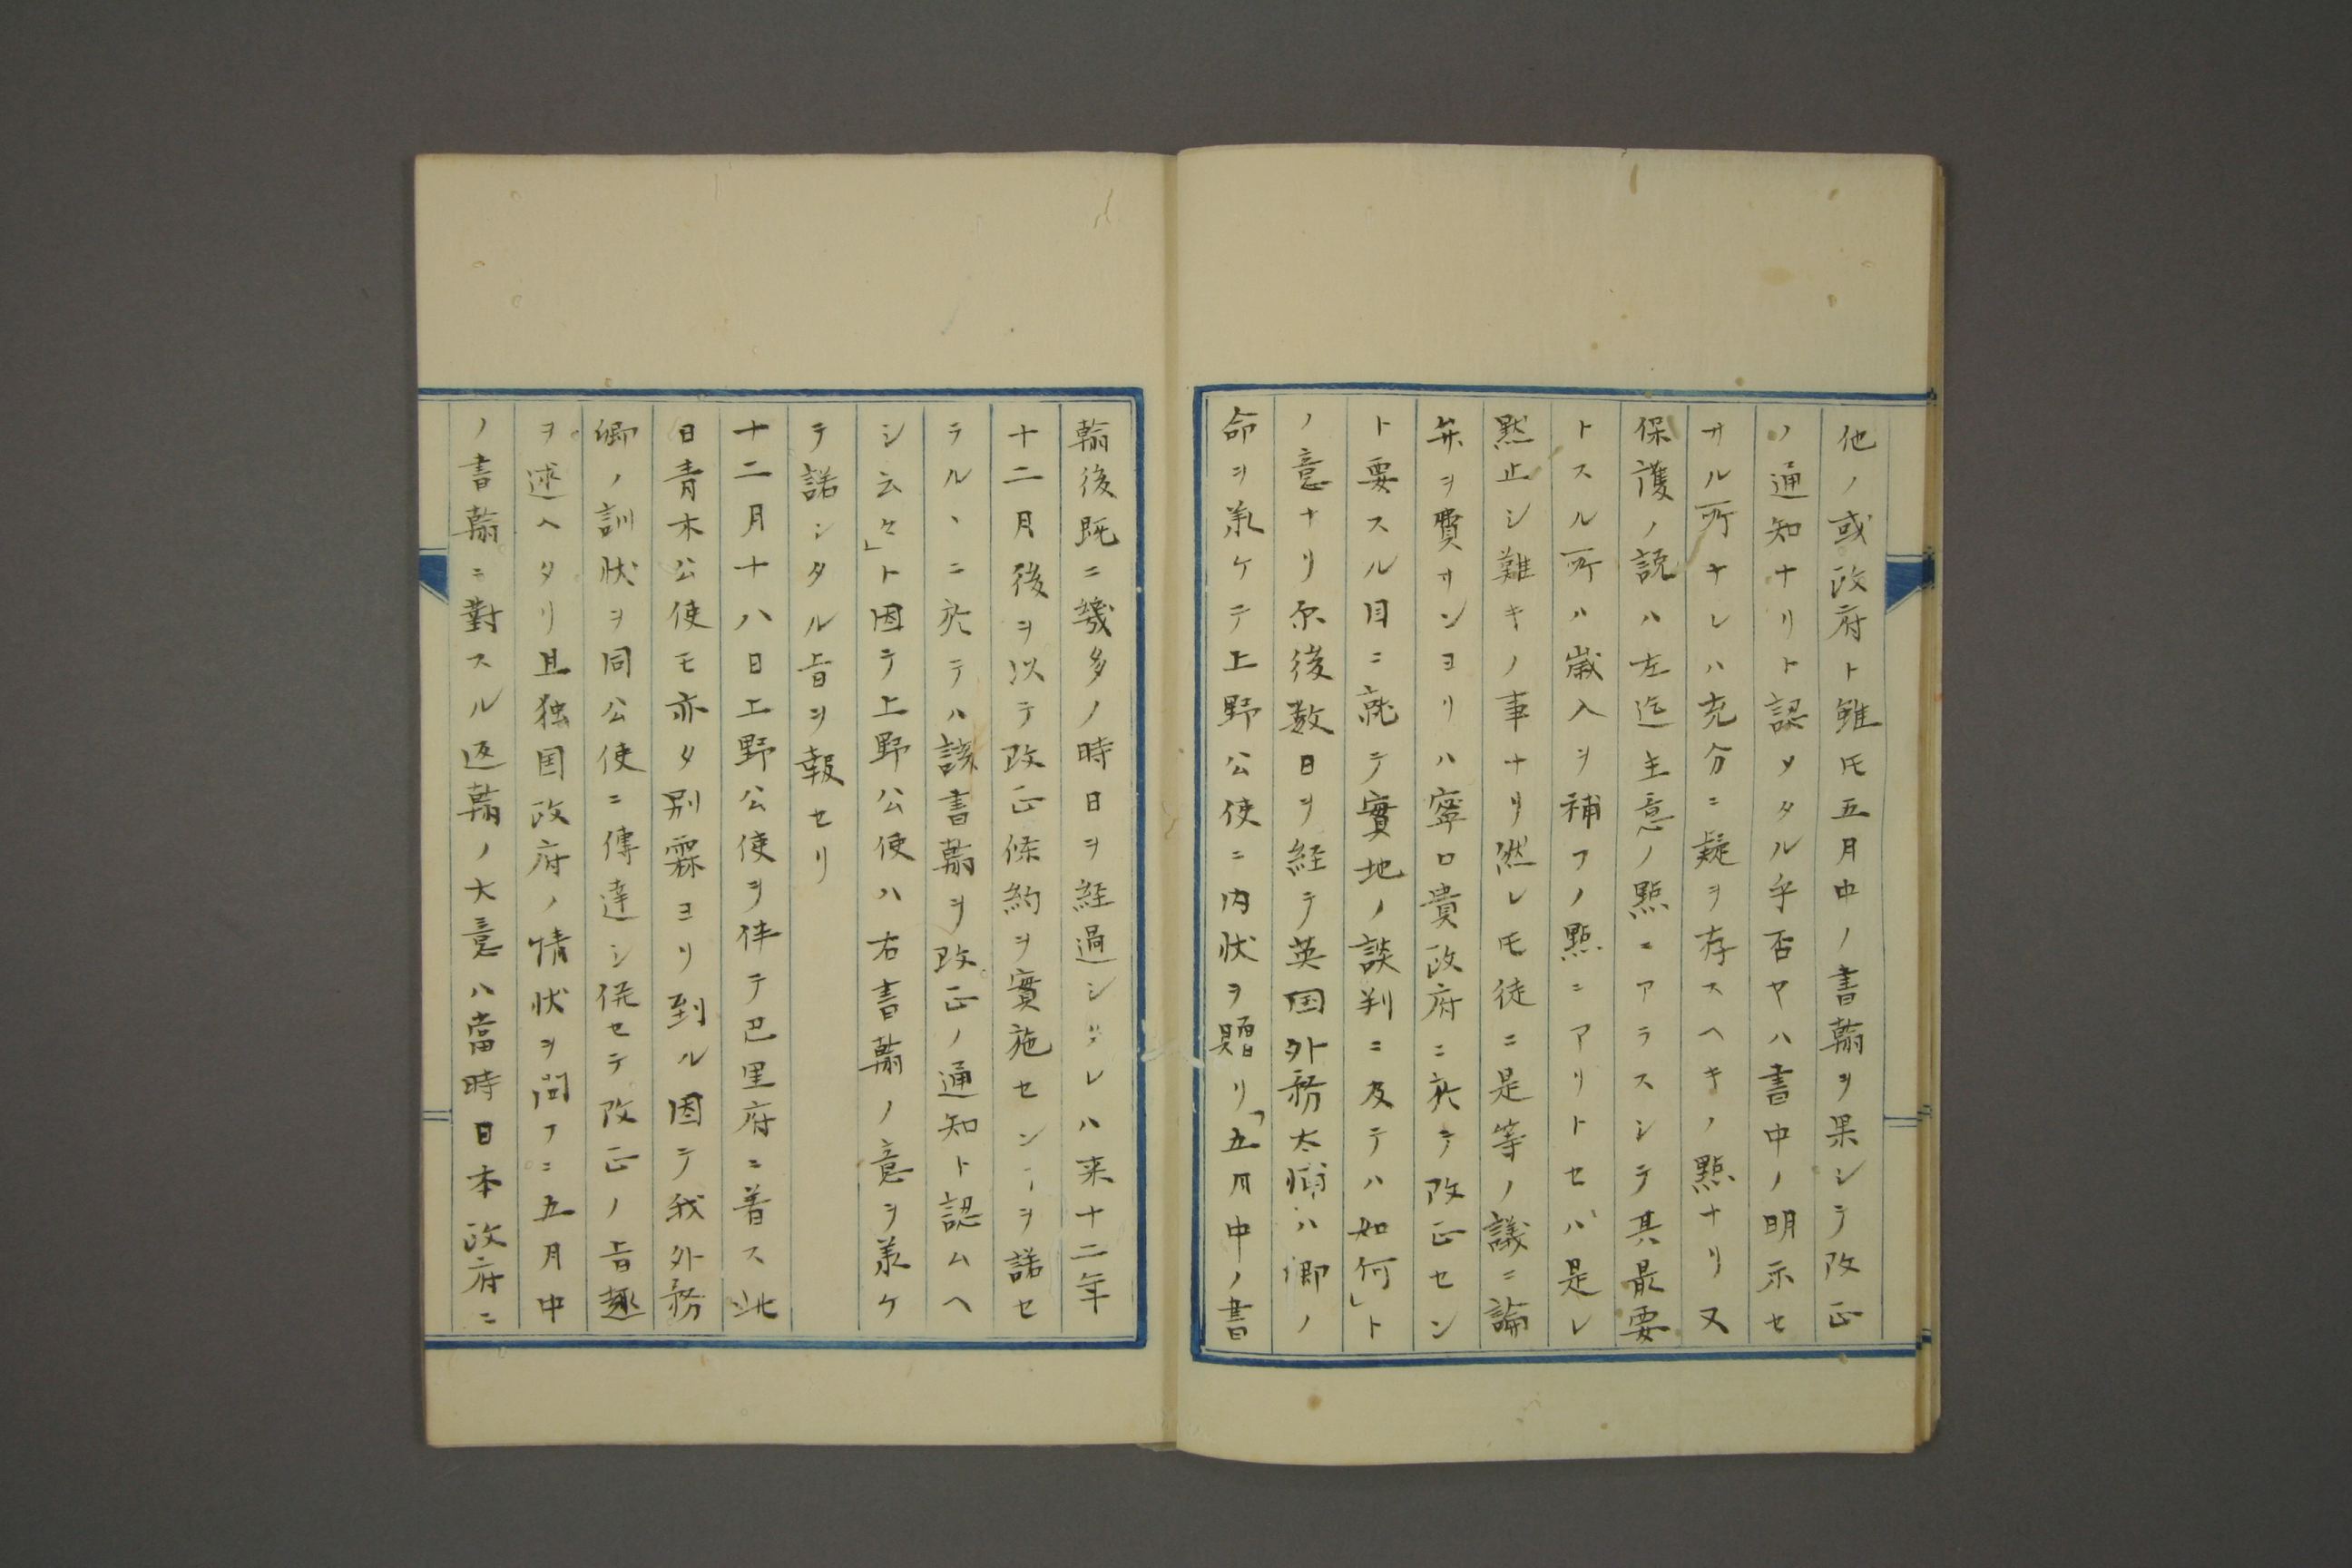 他ノ或政府ト雖モ五月中ノ書翰ヲ果シテ改正
ノ通知ナリト認メタル乎否ヤハ書中ノ明示セ
サル所ナレハ充分ニ疑ヲ存スヘキノ點ナリ又
保護ノ説ハ左迄主意ノ點ニアラスシテ其最要
トスル所ハ歳入ヲ補フノ點ニアリトセハ是レ
黙止シ難キノ事ナリ然レモ徒ニ是等ノ議ニ論
弁ヲ費サンヨリハ寧ロ貴政府ニ於テ改正セン
ト要スル目ニ就テ實地ノ談判ニ及テハ如何」ト
ノ意ナリ尓後数日ヲ経テ英国外務太輔ハ卿ノ
命ヲ承ケテ上野公使ニ内状ヲ贈リ「五月中ノ書
翰後既ニ幾多ノ時日ヲ経過シタレハ来十二年
十二月後ヲ以テ改正條約ヲ實施センヿヲ諾セ
ラルヽニ於テハ該書翰ヲ改正ノ通知ト認ムヘ
シ云々」ト因テ上野公使ハ右書翰ノ意ヲ承ケ
テ諾シタル旨ヲ報セリ
十二月十八日上野公使ヲ伴テ巴里府ニ着ス此
日青木公使モ亦タ別霖ヨリ到ル因テ我外務
卿ノ訓状ヲ同公使ニ傳達シ併セテ改正ノ旨趣
ヲ述ヘタリ且独国政府ノ情状ヲ問フニ五月中
ノ書翰ニ對スル返翰ノ大意ハ當時日本政府ニ